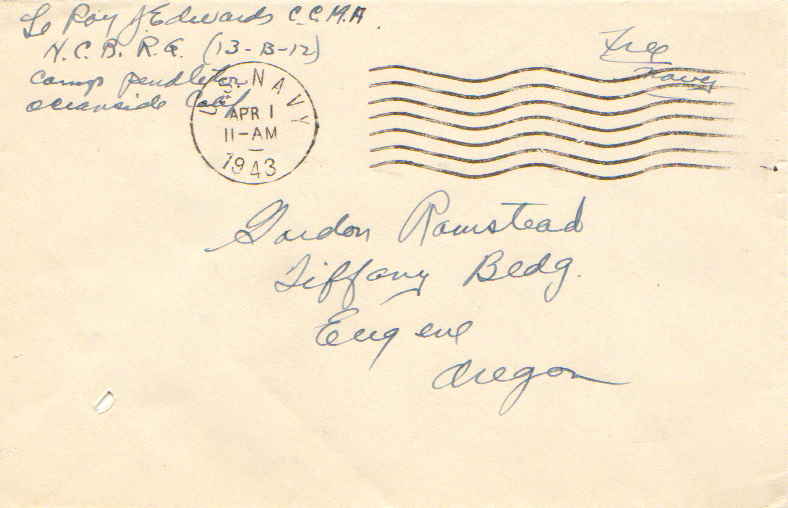 Le Roy J Edwards C.C.M.A.
N.C.B. R.G. (13-B-12)
Camp Pendleton
Oceanside Calif
U.S. NAVY
APR 1
11-AM
1943
Free
Navy
Gordon Ramstead
Tiffany Bldg.
Eugene
Oregon